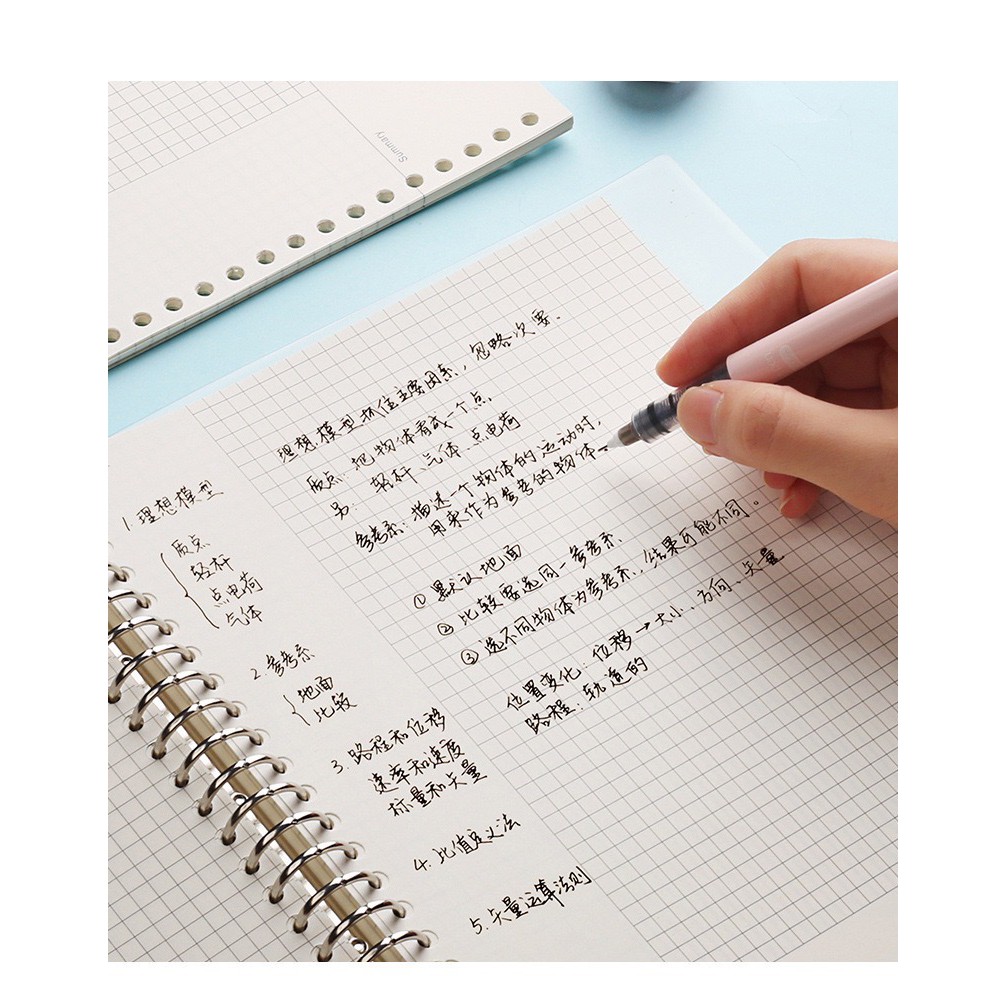 Summary
理想模型抓住主要因素,忽略次要.
质点:把物体看成一个点
另:轻杆 气体 点电荷
参考系:描述一个物体的运动时,
用来作为参考的物体.
① 默认地面
② 比较要选同一参考系
③ 选不同物体为参考系,结果可能不同.
位置变化:位移→大小、方向、矢量
路程:轨道的
1.理想模型
质点
轻杆
点电荷
气体
2.参考系
地面
比较
3.路程和位移
速率和速度
标量和矢量
4.比值定义法
5.矢量运算法则